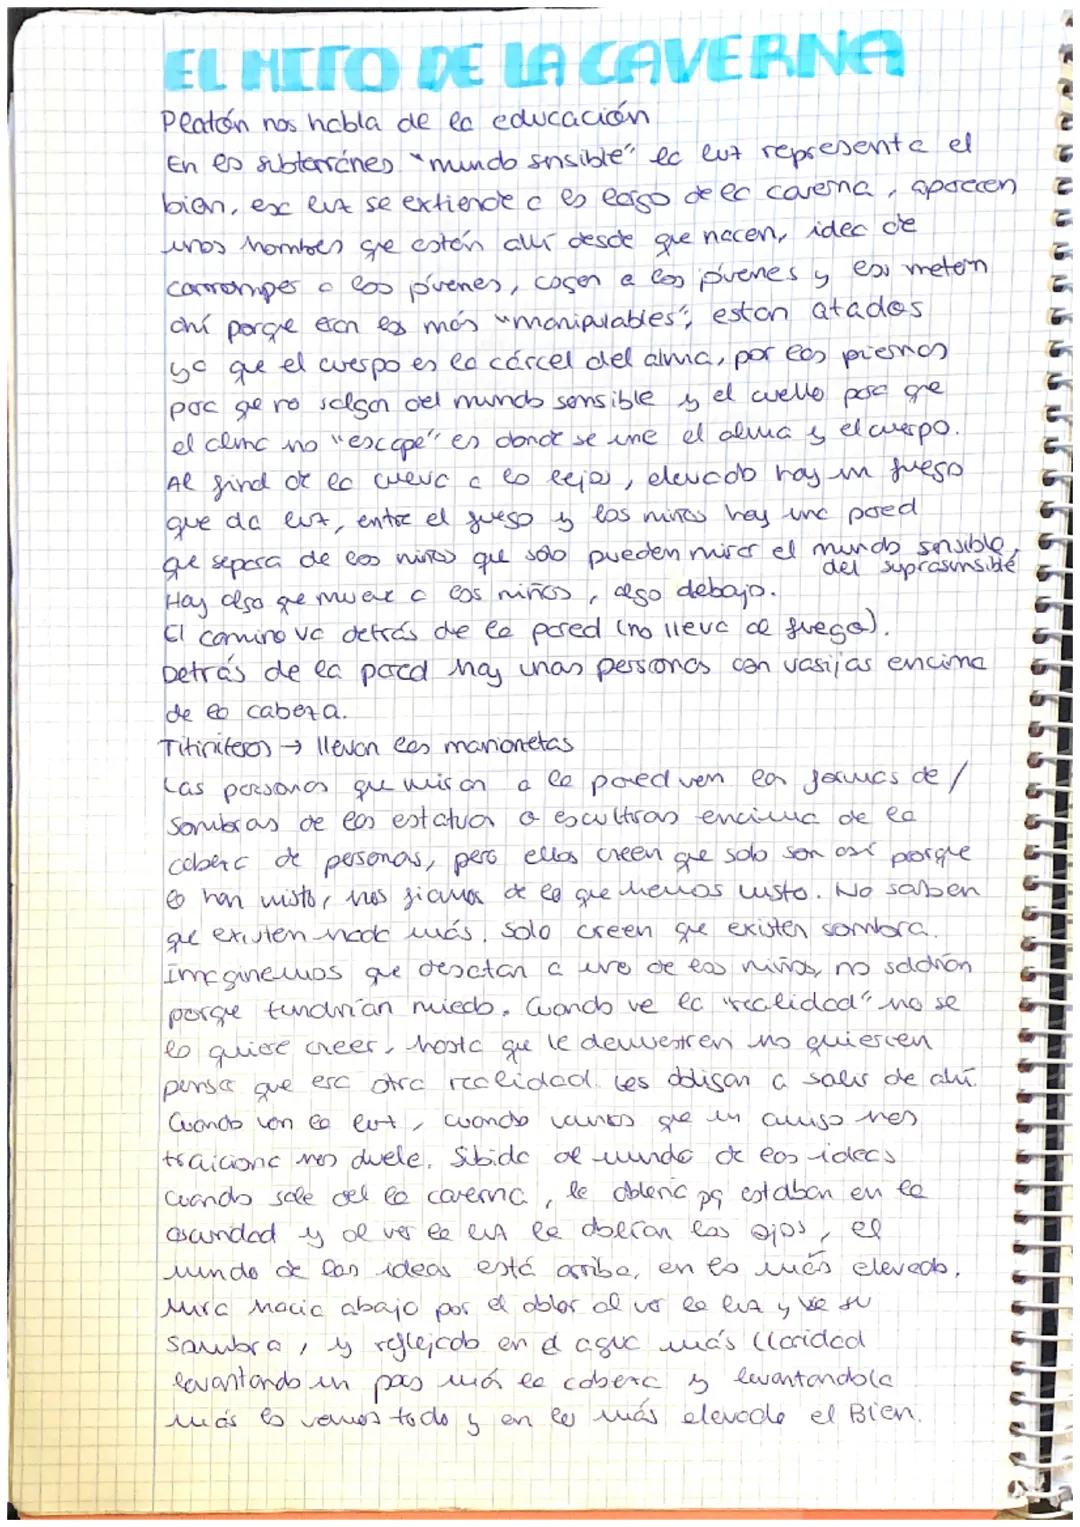 EL MITO DE LA CAVERNA
Platón nos habla de la educación
En lo subterráneo "mundo sensible" la luz representa el
bien, esa luz se extiende a lo largo de la caverna, aparecen
unos hombres que están allí desde que nacen, idea de
corromper a los jóvenes, cogen a los jóvenes y los meten
ahí porque eran los más "manipulables", estan atados
ya que el cuerpo es la cárcel del alma, por las piernas
para que no salgan del mundo sensible y el cuello para que
el alma no "escape" es donde se une el alma y el cuerpo.
Al final de la cueva a lo lejos, elevado hay un fuego
que da luz, entre el fuego y los niños hay una pared
que separa de los niños que solo pueden mirar el mundo sensible,
del suprasensible
Hay algo que mueve a los niños, algo debajo.
El camino va detrás de la pared (no lleva al fuego).
Detrás de la pared hay unas personas con vasijas encima
de la cabeza.
Titiriteros → llevan las marionetas
Las personas que miran a la pared ven las formas de /
sombras de las estatuas o esculturas encima de la
cabeza de personas, pero ellos creen que solo son así porque
lo han visto, nos fiamos de lo que hemos visto. No saben
que existen nada más, solo creen que existen sombra.
Imaginemos que desatan a uno de los niños, no saldrían
porque tendrían miedo. Cuando ve la "realidad" no se
lo quiere creer, hasta que le demuestren no quieren
pensar que esa otra realidad. Les obligan a salir de ahí.
Cuando ven la luz, cuando vemos que un amigo nos
traiciona nos duele. Subida al mundo de las ideas
Cuando sale del la caverna, le pq estaban en la
oscuridad y al ver la luz le dolían los ojos, el
mundo de las ideas está arriba, en lo más elevado.
Mira hacia abajo por el dolor al ver la luz y ve su
sombra, y reflejado en el agua más claridad
levantando un poco más la cabeza y levantandola
más lo vemos todo y en lo más elevado el Bien.